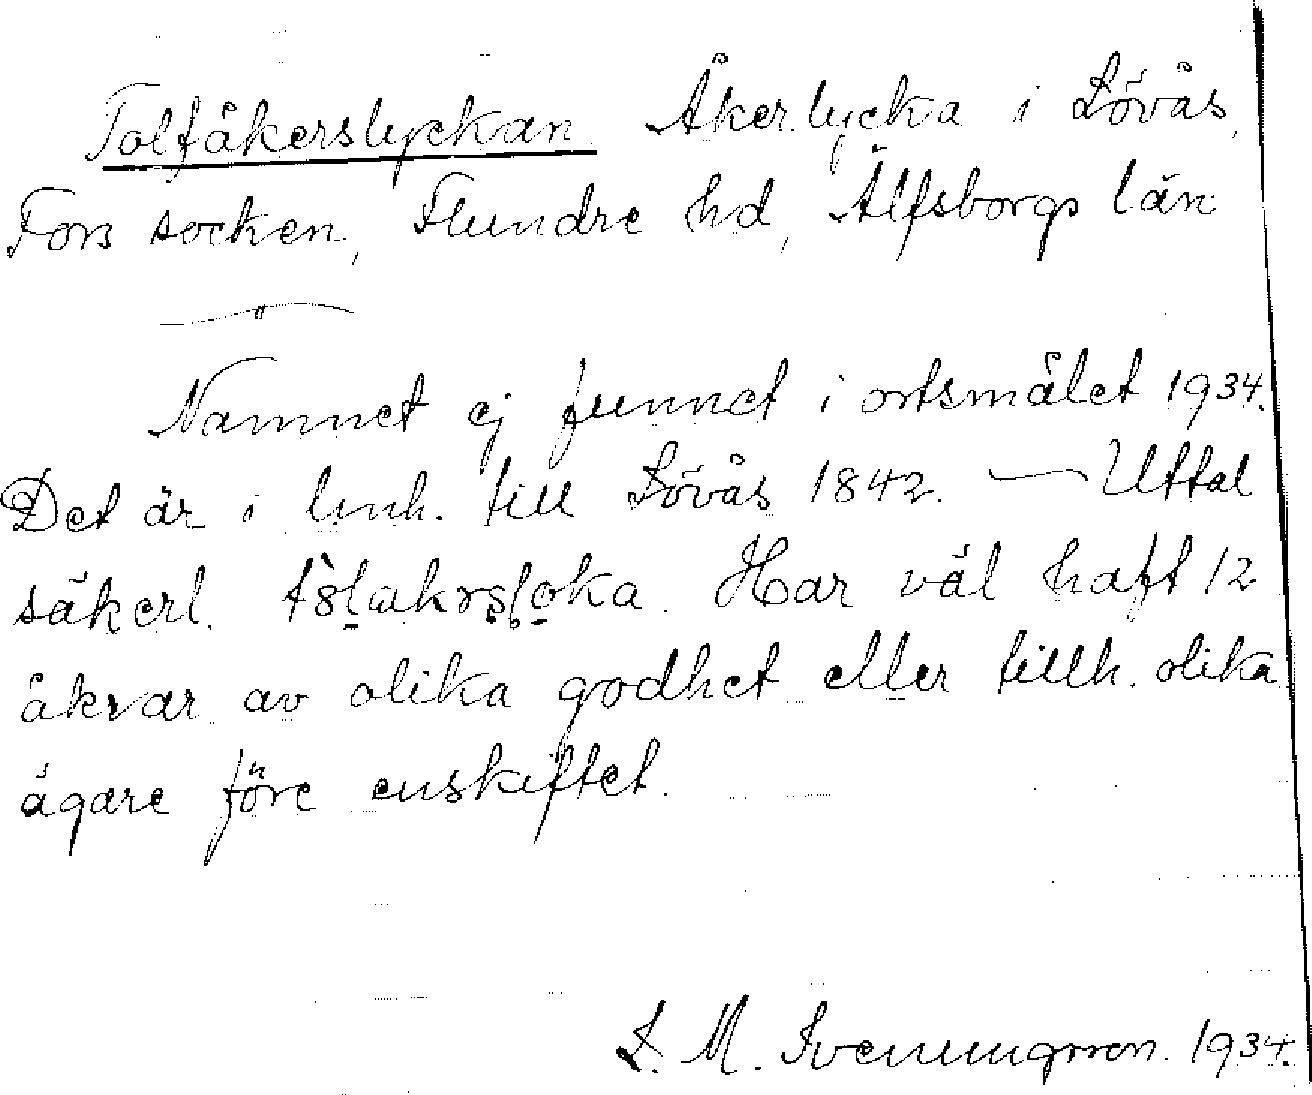 Tolfåkerslyckan Åkerlycka i Lövås,
Fors socken, Flundre hd, Älfsborgs län
Namnet ej funnet i ortsmålet 1934.
Det är i enh. till Lövås 1842. — Uttal
säkerl. Har väl haft 12
åkrar av olika godhet eller tillh. olika
ägare före enskiftet.
L. M. Svenungsson. 1934.